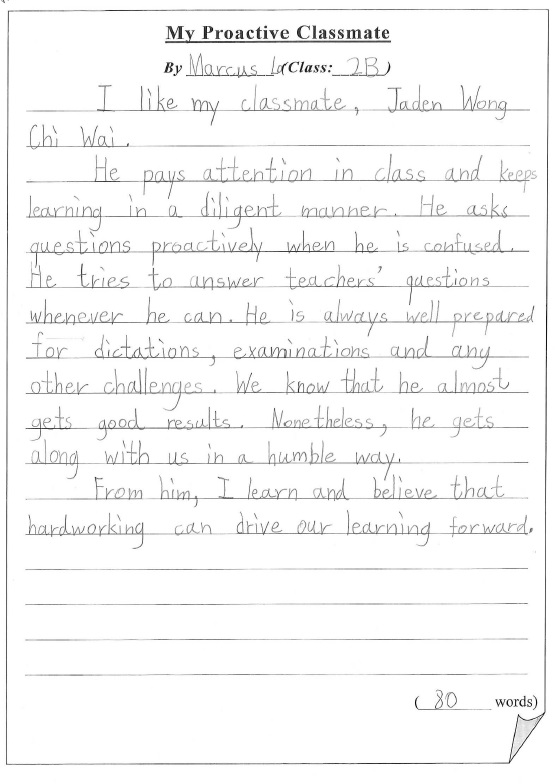 My Proactive Classmate
By Marcus Lo (Class: 2B)
I like my classmate, Jaden Wong
Chi Wai.
He pays attention in class and keeps
learning in a diligent manner. He asks
questions proactively when he is confused.
He tries to answer teachers' questions
whenever he can. He is always well prepared
for dictations, examinations and any
other challenges. We know that he almost
gets good results. Nonetheless, he gets
along with us in a humble way.
From him, I learn and believe that
hardworking can drive our learning forward.
( 80 words)